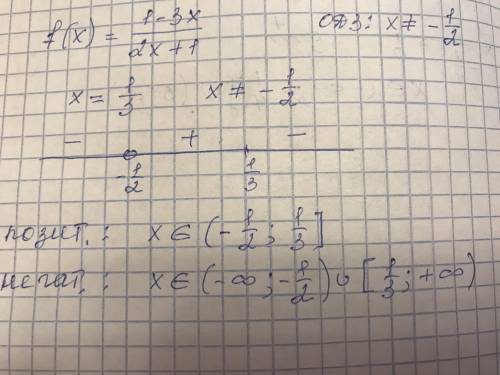 f(x) = (1-3x)/(2x+1) ОДЗ: x ≠ -1/2
x = 1/3 x ≠ -1/2
- + -
-1/2 1/3
позит.: x ∈ (-1/2; 1/3]
негат.: x ∈ (-∞; -1/2) ∪ [1/3; +∞)